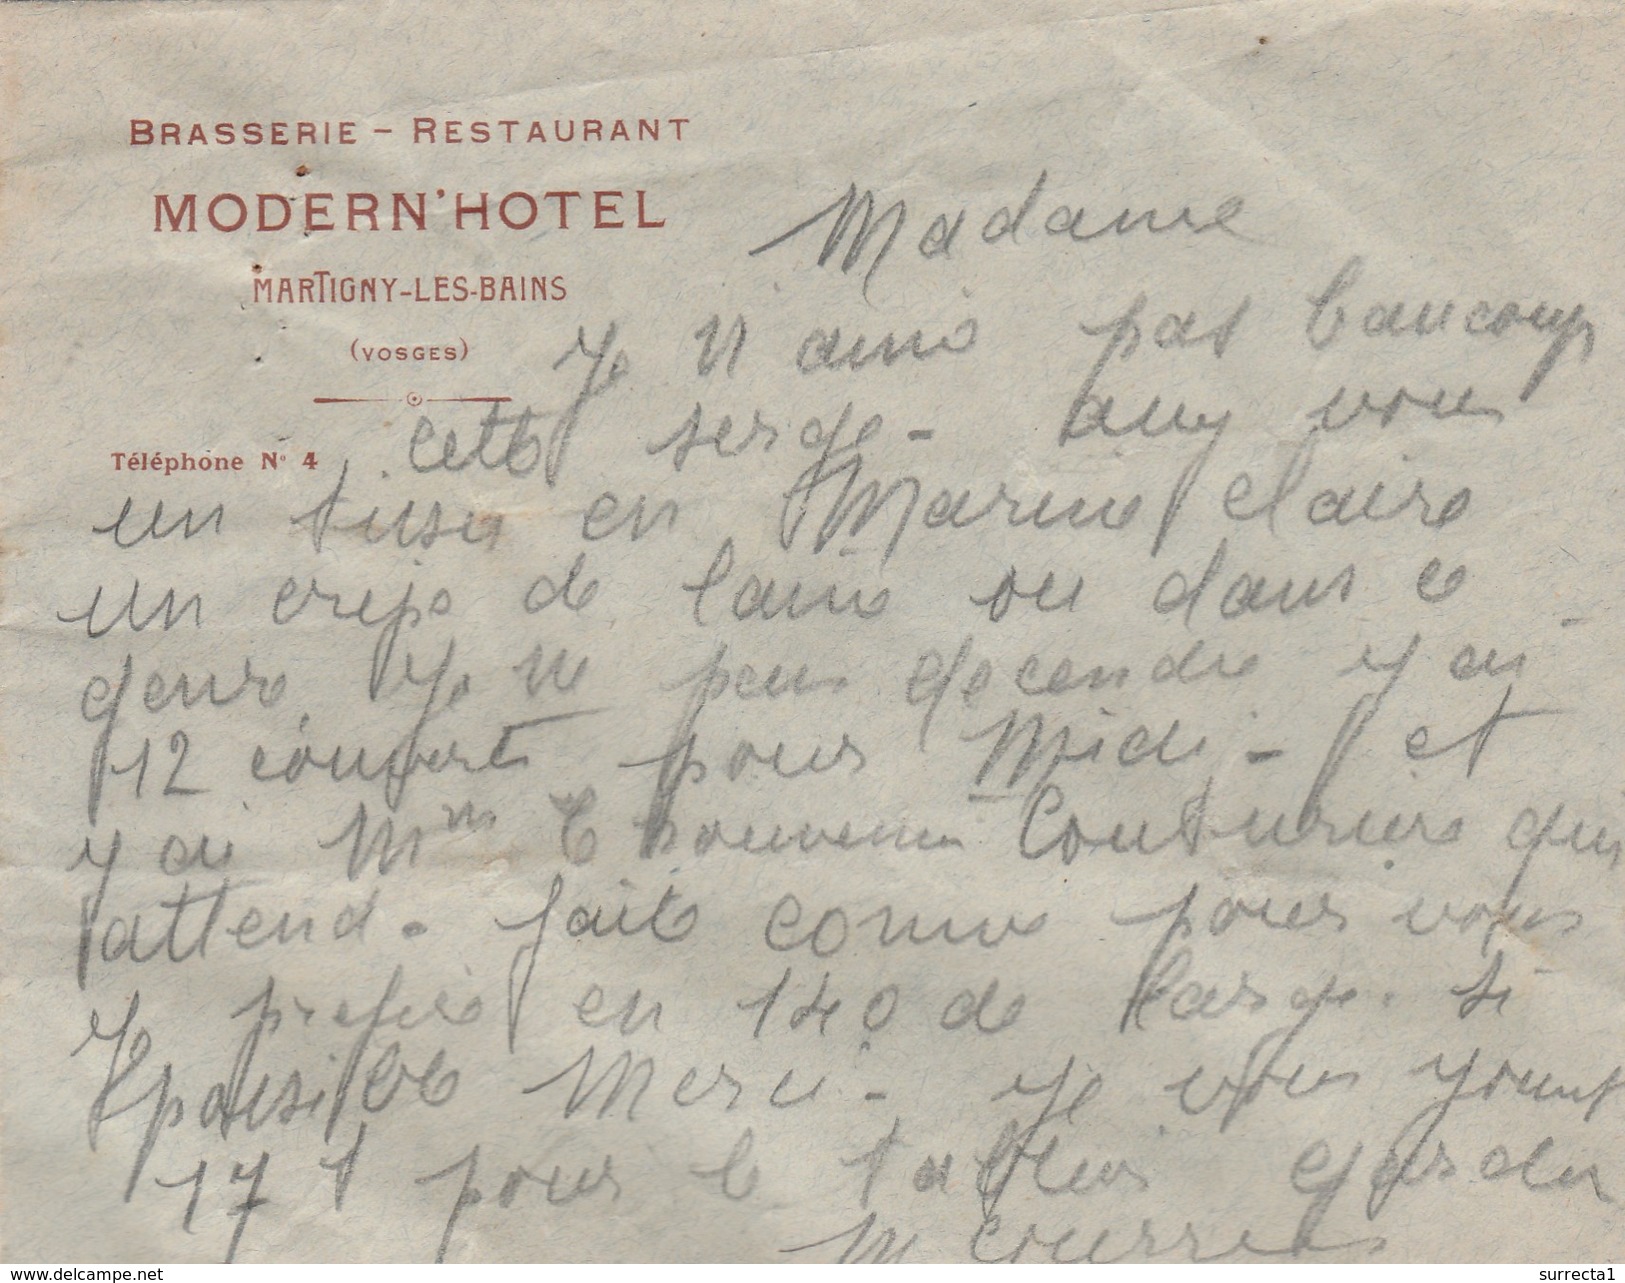 BRASSERIE - RESTAURANT
MODERN'HOTEL
MARTIGNY-LES-BAINS
(VOSGES)
Téléphone N° 4
Madame
Je n'aime pas baucoup
cette serge - avez vous
un tissu en Marine claire
un crêpe de laine ou dans ce
genre. Je ne peus decendre j ai
12 couverts pour Midi - et
j ai Mme Thouvenin Couturiere qui
attend - faite comme pour vous
Je prefere en 140 de large. si
possible Merci - je vous joint
17 f pour le tablier garder
delcampe.net
surrecta1